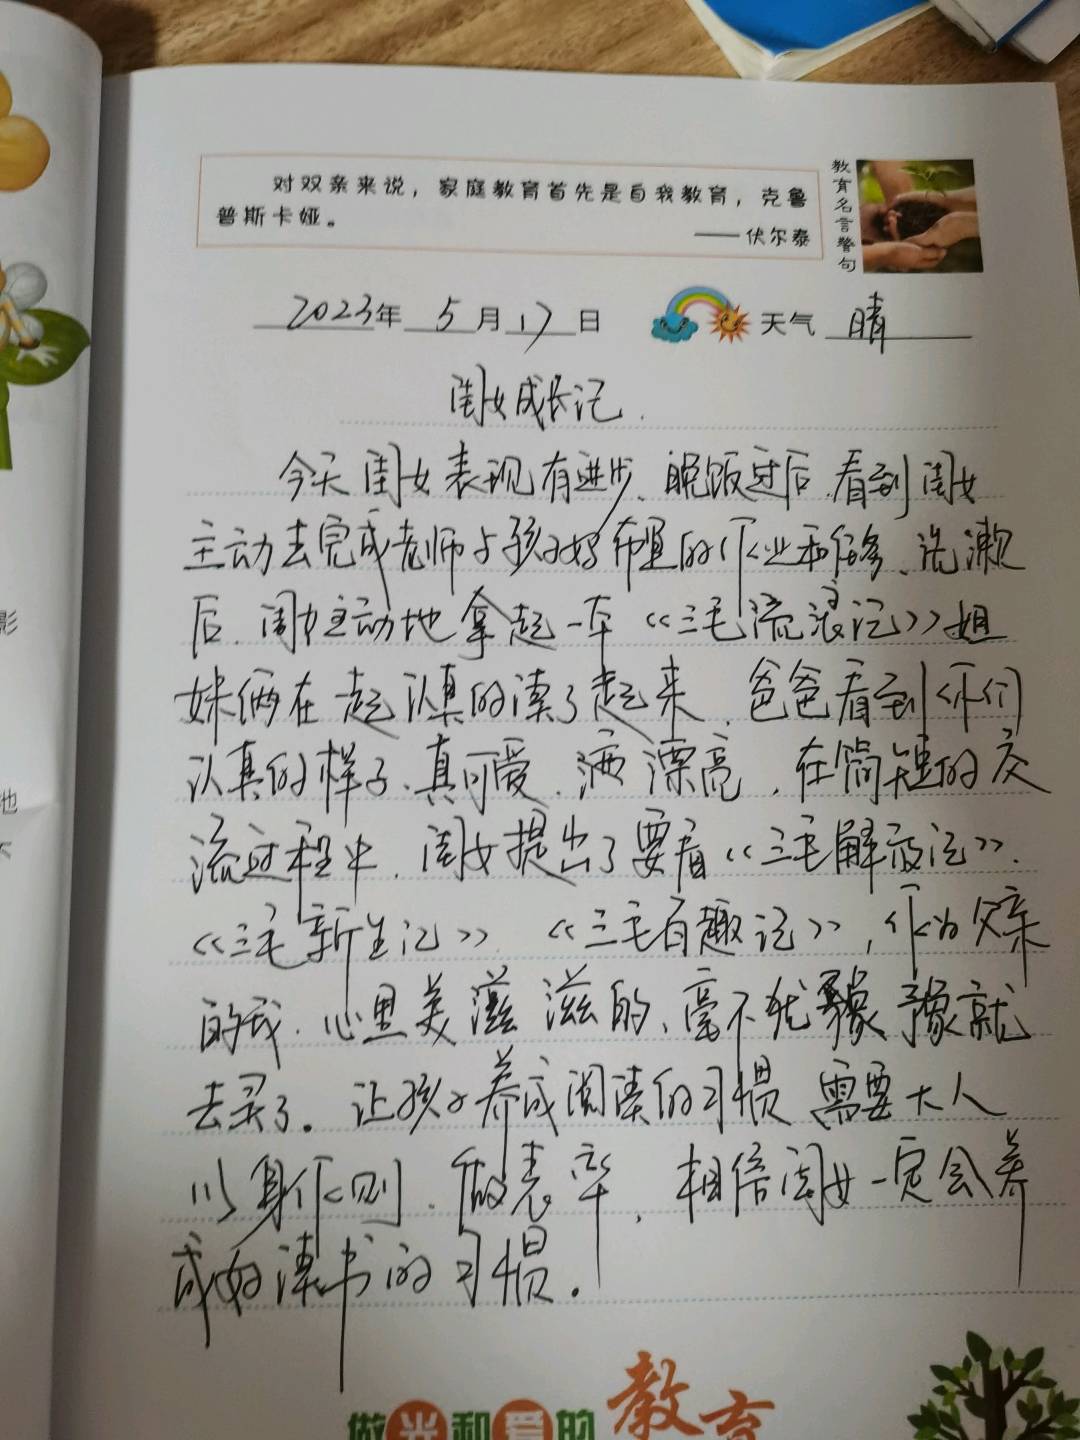 对双亲来说，家庭教育首先是自我教育，克鲁
普斯卡娅。
——伏尔泰
教育名言警句
2023年 5月17日 天气 晴
闺女成长记.
今天闺女表现有进步、晚饭过后,看到闺女
主动去完成老师与孩子好布置的作业和任务、洗漱
后、闺女主动地拿起一本《三毛流浪记》姐
妹俩在一起认真的读了起来,爸爸看到你们
认真的样子、真可爱、满漂亮,在简短的交
流过程中,闺女提出了要看《三毛解放记》、
《三毛新生记》、《三毛百趣记》,作为父亲
的我,心里美滋滋的、毫不犹豫就
去买了。让孩子养成阅读的习惯 需要大人
以身作则、做表率、相信闺女一定会养
成好读书的习惯。
做光和爱的教育
影
地
不